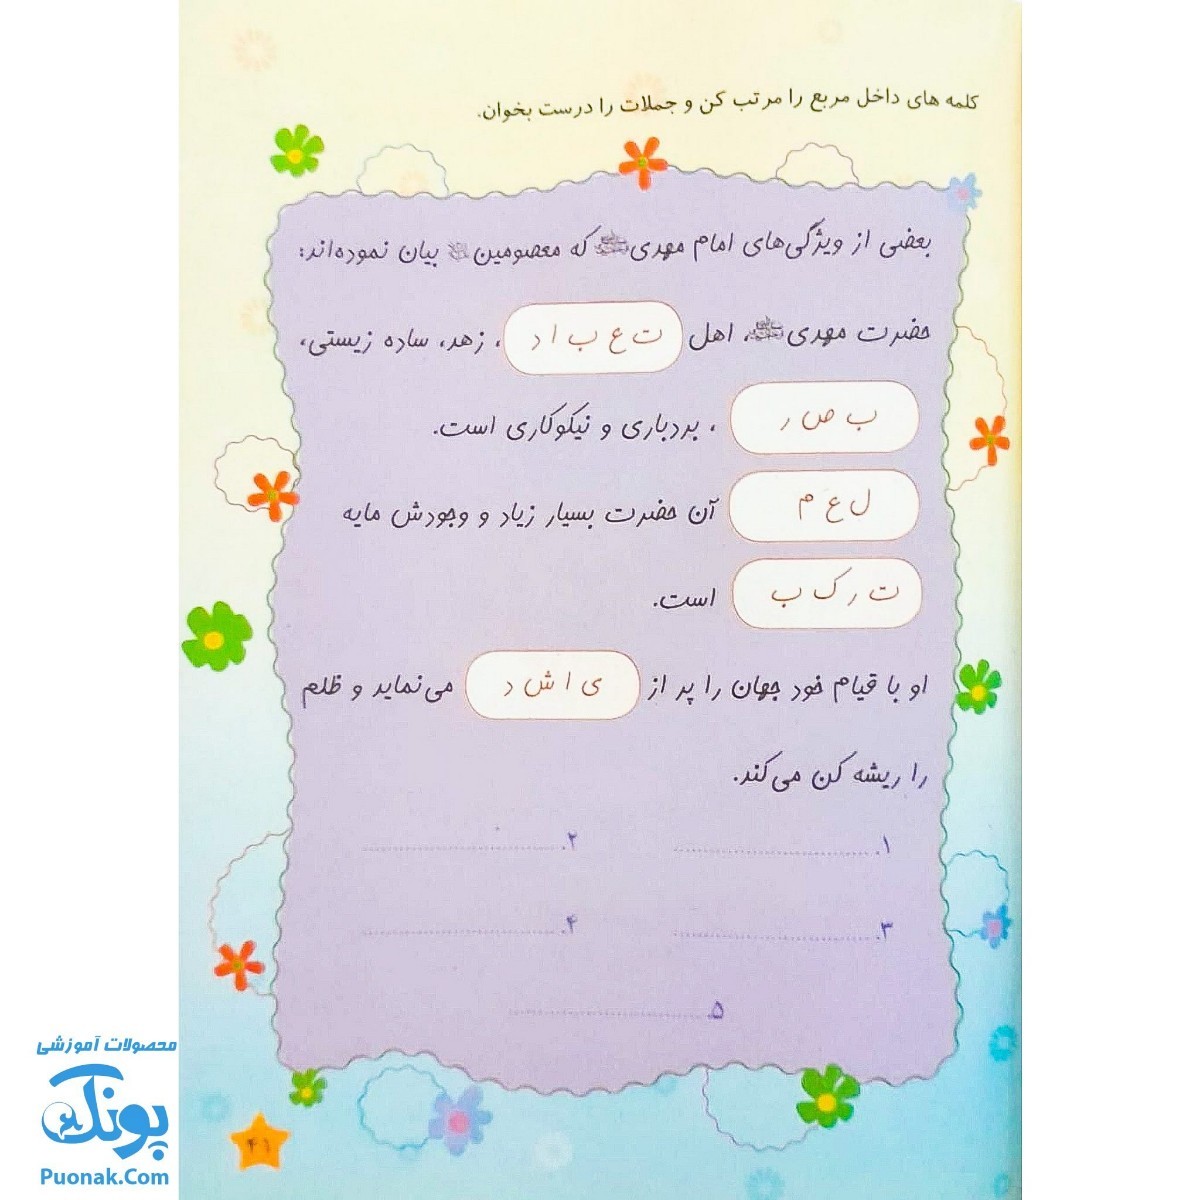 کلمه های داخل مربع را مرتب کن و جملات را درست بخوان.
بعضی از ویژگی‌های امام مهدی که معصومین بیان نموده‌اند:
حضرت مهدی، اهل ت ع ب ا د ، زهد، ساده زیستی،
ب ص ر ، بردباری و نیکوکاری است.
ل ع م آن حضرت بسیار زیاد و وجودش مایه
ت ر ک ب است.
او با قیام خود جهان را پر از ی ا ش د می‌نماید و ظلم
را ریشه کن می‌کند.
۱. ۲.
۳. ۴.
۵.
۴۱
محصولات آموزشی
پونک
Puonak.Com